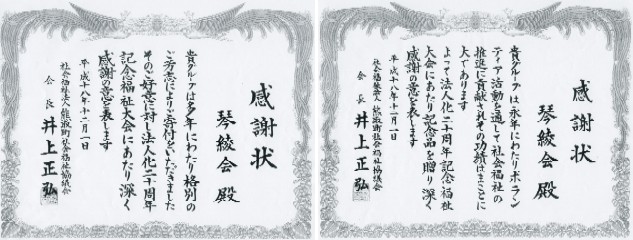 感謝状
琴綾会殿
貴グループは多年にわたり格別の
ご芳志によりご寄付をいただきました
そのご好意に対し法人化二十周年
記念福祉大会にあたり深く
感謝の意を表します
平成十八年十二月一日
社会福祉法人熊取町社会福祉協議会
会長 井上正弘
感謝状
琴綾会殿
貴グループは永年にわたりボラン
ティア活動を通して社会福祉の
推進に貢献されその功績はまことに
大であります
よって法人化二十周年記念福祉
大会にあたり記念品を贈り深く
感謝の意を表します
平成十八年十二月一日
社会福祉法人熊取町社会福祉協議会
会長 井上正弘